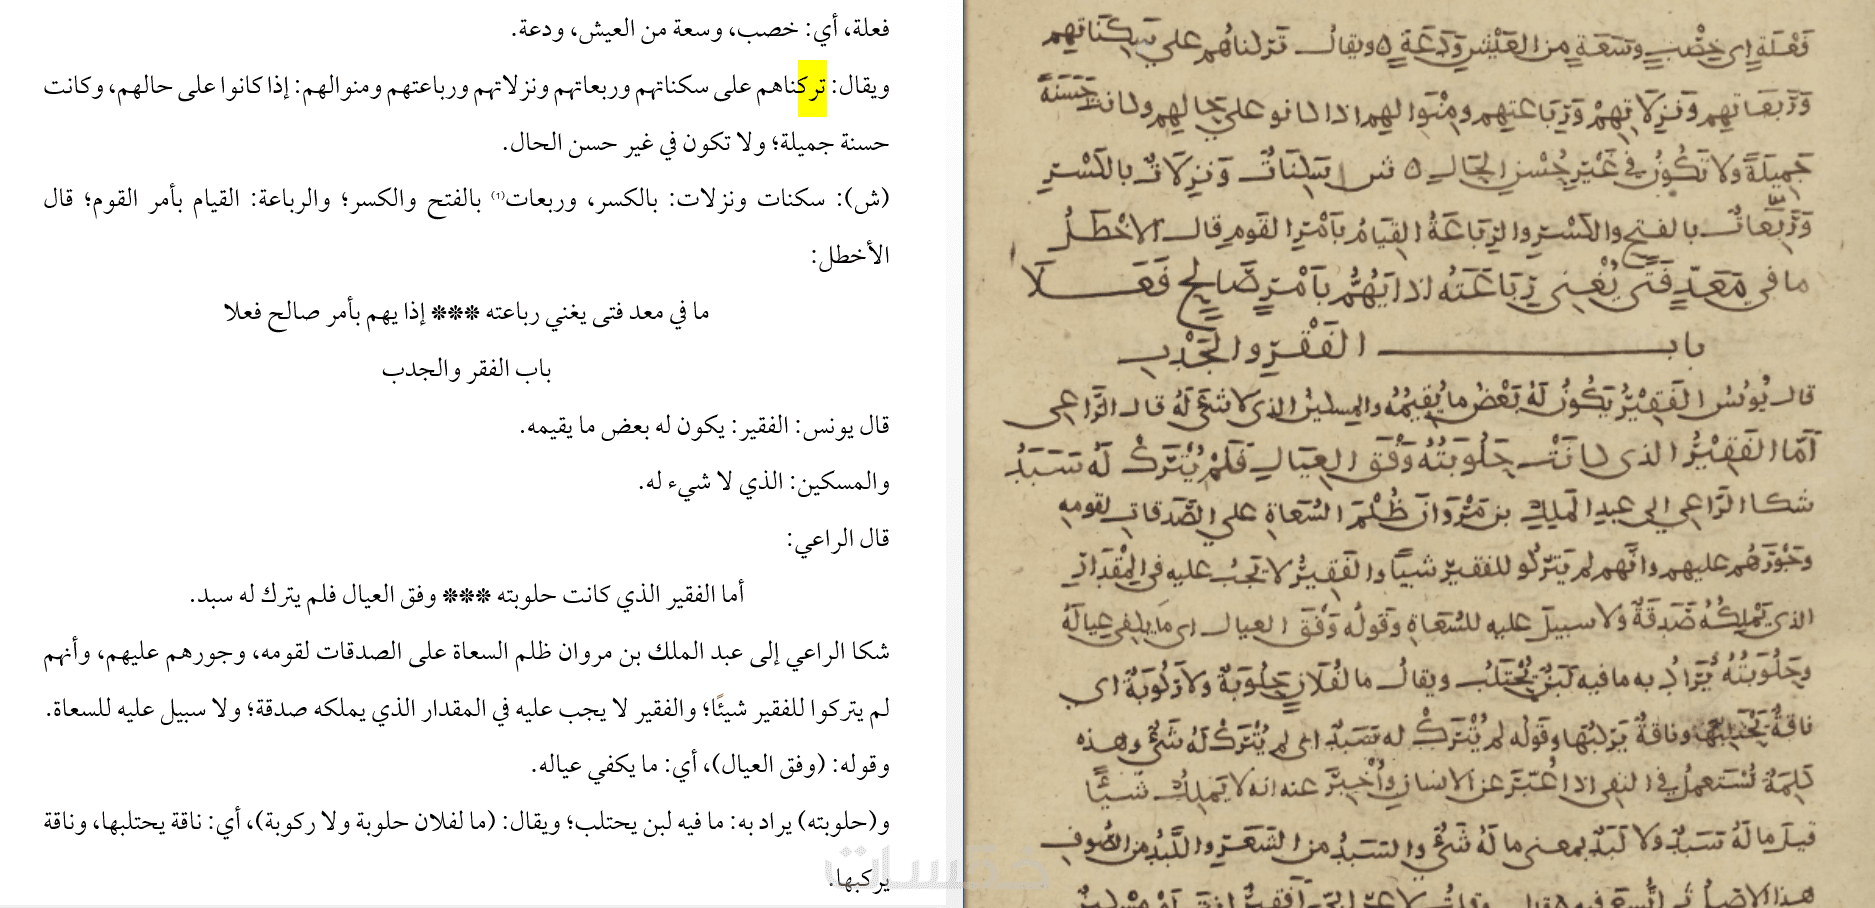 فعلة، أي: خصب، وسعة من العيش، ودعة.
ويقال: تركناهم على سكناتهم وربعاتهم ونزلاتهم ورباعتهم ومنوالهم: إذا كانوا على حالهم، وكانت
حسنة جميلة؛ ولا تكون في غير حسن الحال.
(ش): سكنات ونزلات: بالكسر، وربعات(٦) بالفتح والكسر؛ والرباعة: القيام بأمر القوم؛ قال
الأخطل:
ما في معد فتى يغني رباعته *** إذا يهم بأمر صالح فعلا
باب الفقر والجدب
قال يونس: الفقير: يكون له بعض ما يقيمه.
والمسكين: الذي لا شيء له.
قال الراعي:
أما الفقير الذي كانت حلوبته *** وفق العيال فلم يترك له سبد.
شكا الراعي إلى عبد الملك بن مروان ظلم السعاة على الصدقات لقومه، وجورهم عليهم، وأنهم
لم يتركوا للفقير شيئًا؛ والفقير لا يجب عليه في المقدار الذي يملكه صدقة؛ ولا سبيل عليه للسعاة.
وقوله: (وفق العيال)، أي: ما يكفي عياله.
و(حلوبته) يراد به: ما فيه لبن يحتلب؛ ويقال: (ما لفلان حلوبة ولا ركوبة)، أي: ناقة يحتلبها، وناقة
يركبها.
خمسات
فَعْلَةٍ اي خِصْبٍ وسَعَةٍ من العَيْشِ وَدَعَةٍ ٥ ويقال تَرَكناهُم على سَكِنَاتِهِم
وَرَبَعَاتِهِم وَنَزِلَاتِهِمْ وَرِبَاعَتِهِم ومِنْوَالِهِم اذا كانو على حالِهِم وكانت حَسَنَةً
جَمِيلَةً ولا تَكُونُ في غَيْرِ حُسْنِ الحَالِ ٥ ش سَكِنَاتٌ وَنَزِلَاتٌ بالكَسْرِ
وَرَبِعَاتٌ بالفتحِ والكَسْرِ والرِبَاعَةُ القِيَامُ بأمْرِ القَومِ قال الاخْطَلُ
ما في مَعَدٍّ فَتًى يُغْنِي رِبَاعَتَهُ اذا يَهُمُّ بأمْرٍ صَالِحٍ فَعَلَا
باب الفَقْرِ والجَدْبِ
قال يُونُسُ الفَقِيْرُ يَكُونُ لَهُ بَعْضُ ما يُقِيمُهُ والمسكينُ الذي لا شَيْءَ لَهُ قال الرَّاعِي
أمّا الفَقِيْرُ الذي كانَتْ حَلُوبَتُهُ وَفْقَ العِيَالِ فَلَمْ يُتْرَكْ لَهُ سَبَدُ
شكا الرَّاعِي الى عبدِ المَلِكِ بن مَرْوَانَ ظُلْمَ السُّعَاةِ على الصَّدَقاتِ لقومِهِ
وَجَوْرَهُم عليهم وانَّهم لم يَتْرُكُو للفقيرِ شيئًا والفَقِيْرُ لا تَجِبُ عليه في المِقْدَارِ
الذي يَمْلِكُهُ صَدَقَةٌ ولا سبيلَ عليه للسُّعَاةِ وقَولُهُ وَفْقَ العيالِ اي ما يكفي عِيالَهُ
وحَلُوبَتُهُ يُرَادُ به ما فيه لَبَنٌ يُحْتَلَبُ ويقالُ ما لفُلَانٍ حَلُوبَةٌ ولا رَكُوبَةٌ اي
ناقةٌ يَحْتَلِبُهَا وناقةٌ يَرْكَبُهَا وقَولُه لم يُتْرَكْ له سَبَدٌ اي لم يُتْرَكْ لَهُ شَيْءٌ وهذه
كلِمَةٌ تُسْتَعمَلُ في النفي اذا عُبِّرَ عن الانسانِ وأُخْبِرَ عنه انه لا يَملِكُ شَيْئًا
قيلَ ما لَهُ سَبَدٌ ولا لَبَدٌ بمعنى ما لَهُ شَيْءٌ والسَبَدُ من الشَعَرِ واللَّبَدُ من الصُّوفِ